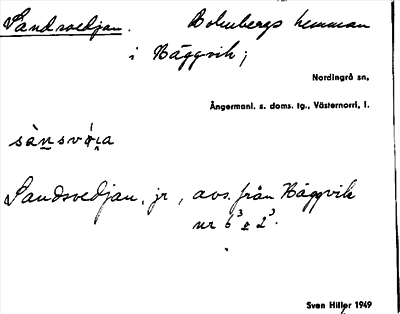 Sandsvedjan. Bolinbergs hemman
i Häggvik;
Nordingrå sn,
Ångermanl. s. doms. tg., Västernorrl. l.
Sandsvedjan, jr, avs. från Häggvik
nr 6³ & 2³.
Sven Hiller 1949